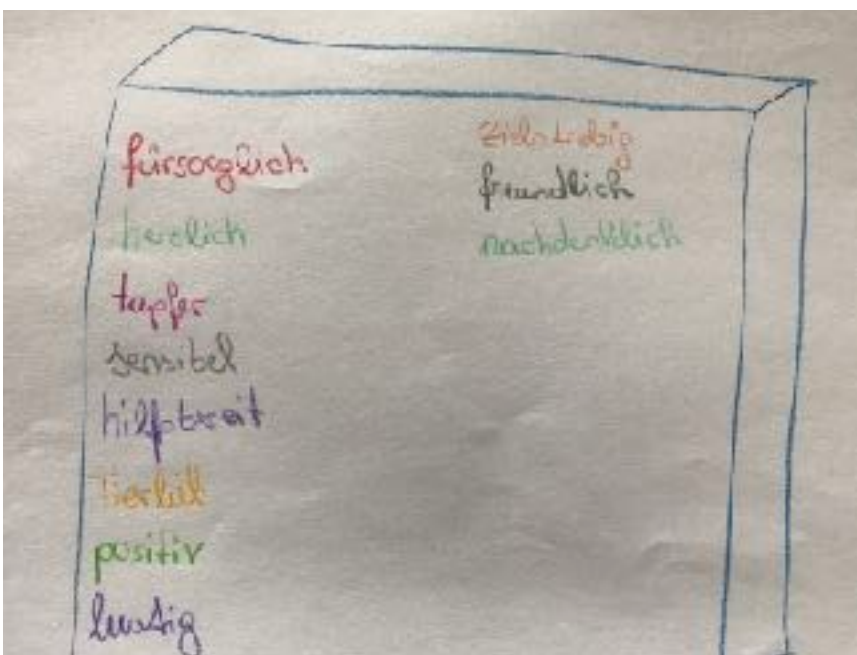 fürsorglich
herzlich
tapfer
sensibel
hilfsbereit
positiv
lustig
zielstrebig
freundlich
nachdenklich